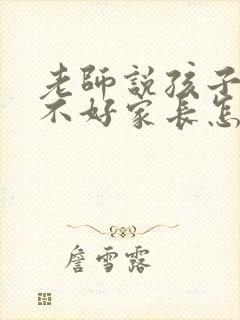 老師說孩子
不好家長怎
詹雪露